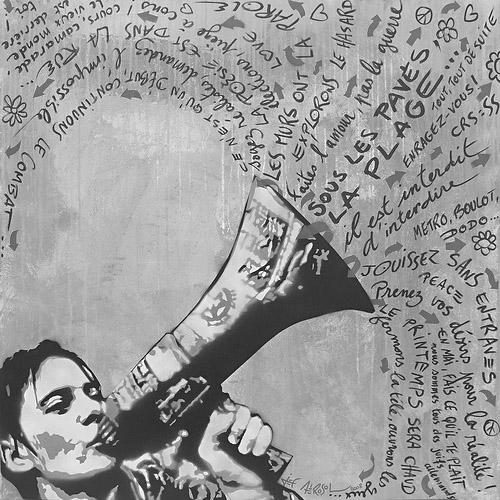 COURS, CAMARADE,
LE VIEUX MONDE
EST DERRIÈRE
TOI...
CONTINUONS LE COMBAT
CE N'EST QU'UN DÉBUT,
l'impossible
Soyez réalistes, demandez
LA POÉSIE EST DANS LA RUE
LOVE
PAROLE
LES MURS ONT LA
EXPLORONS LE HASARD
Faites l'amour, pas la guerre
SOUS LES PAVÉS,
LA PLAGE...
TOUT, TOUT DE SUITE
ENRAGEZ-VOUS!
CRS:SS
il est interdit
d'interdire
METRO, BOULOT,
DODO...
JOUISSEZ SANS ENTRAVES
PEACE
Prenez vos désirs pour la réalité!
EN MAI, FAIS CE QU'IL TE PLAIT
nous sommes tous des juifs allemands
LE PRINTEMPS SERA CHAUD
fermons la télé, ouvrons les
yeux...
JEF AEROSOL 2008